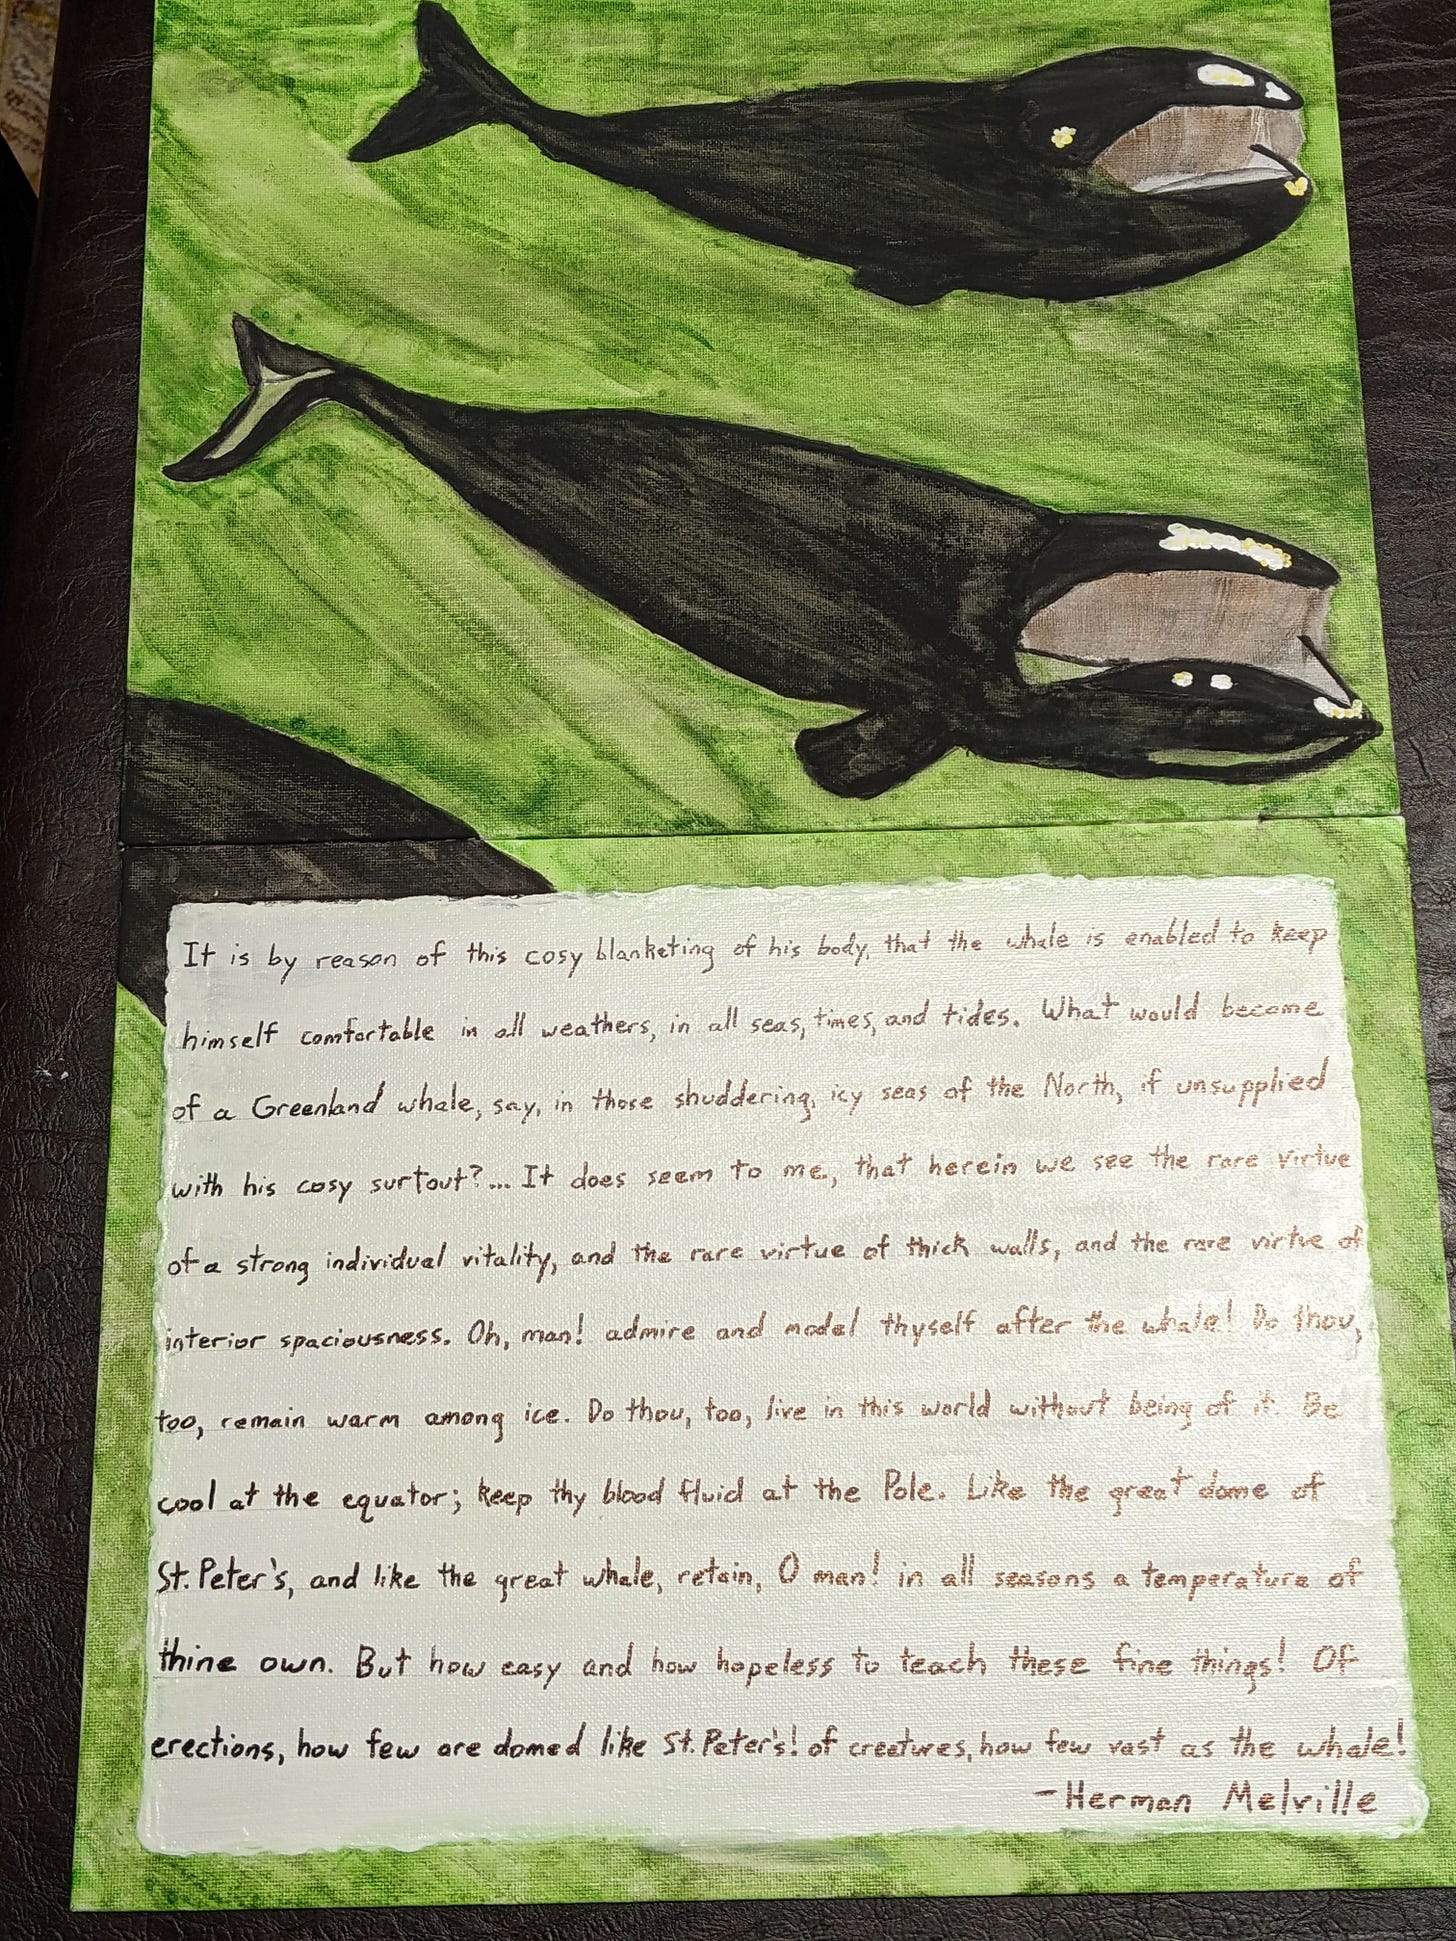 It is by reason of this cosy blanketing of his body, that the whale is enabled to keep
himself comfortable in all weathers, in all seas, times, and tides. What would become
of a Greenland whale, say, in those shuddering, icy seas of the North, if unsupplied
with his cosy surtout?... It does seem to me, that herein we see the rare virtue
of a strong individual vitality, and the rare virtue of thick walls, and the rare virtue of
interior spaciousness. Oh, man! admire and model thyself after the whale! Do thou,
too, remain warm among ice. Do thou, too, live in this world without being of it. Be
cool at the equator; keep thy blood fluid at the Pole. Like the great dome of
St. Peter's, and like the great whale, retain, O man! in all seasons a temperature of
thine own. But how easy and how hopeless to teach these fine things! Of
erections, how few are domed like St. Peter's! of creatures, how few vast as the whale!
-Herman Melville